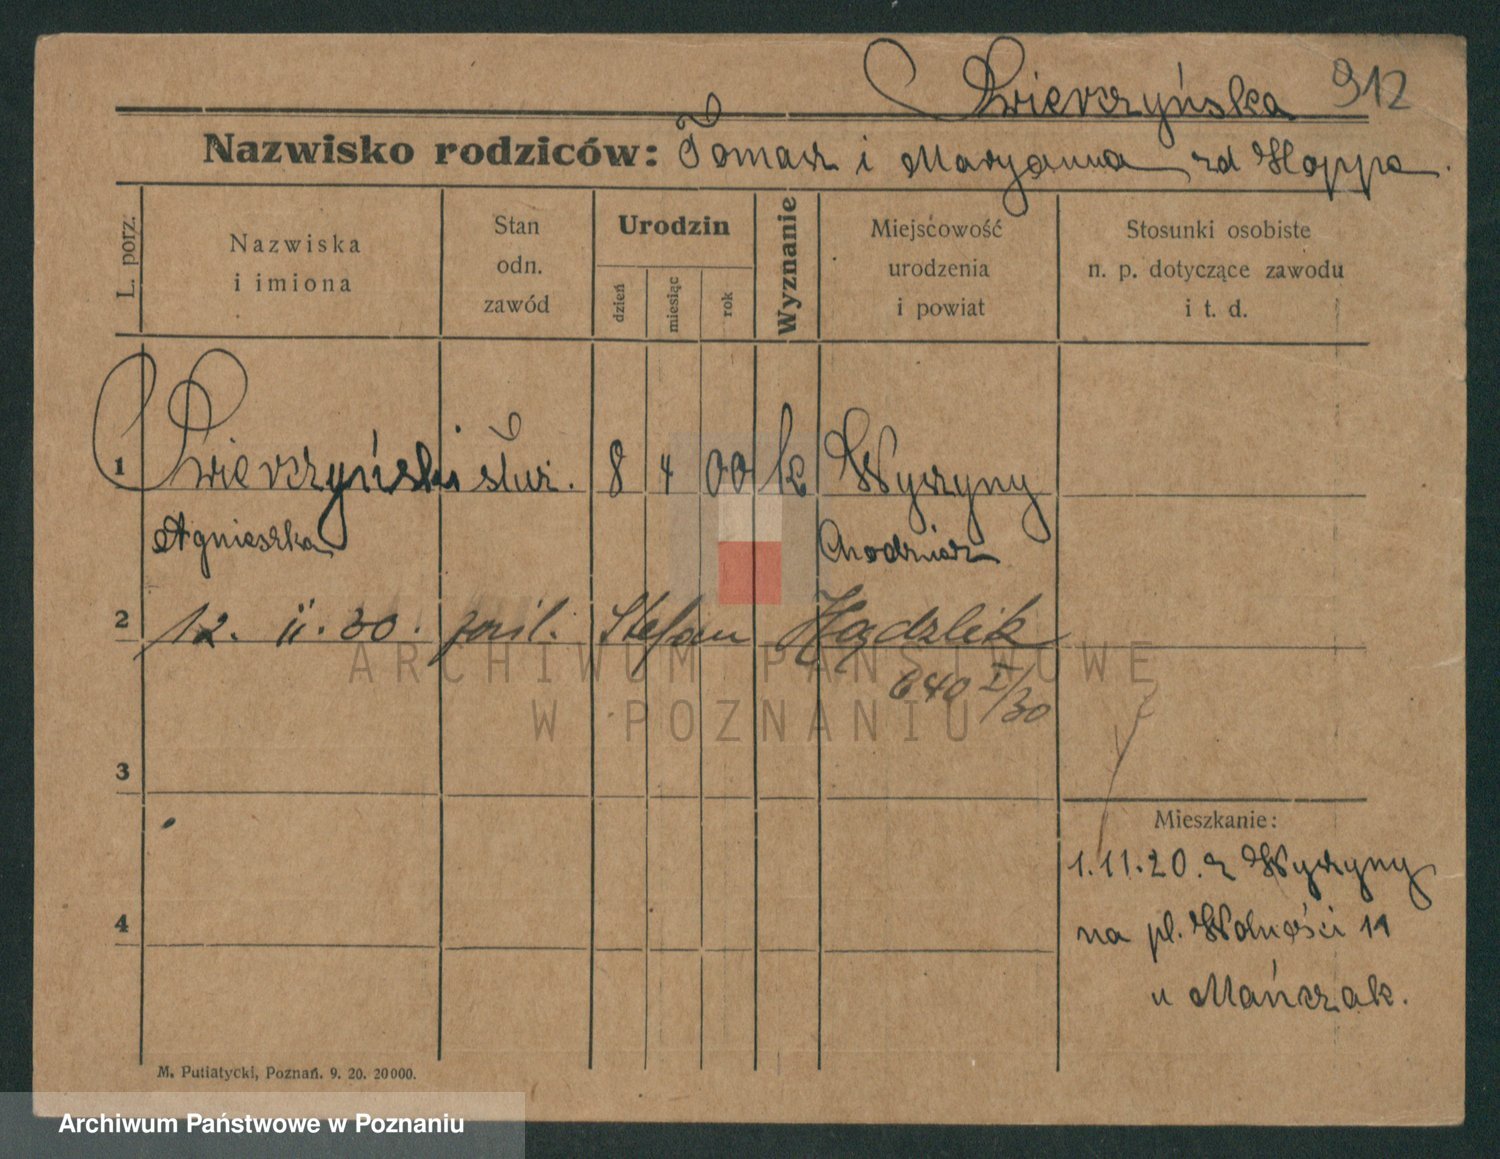 912
Nazwisko rodziców: Tomasz i Maryanna zd Hoppe.
L. porz.
Nazwiska
i imiona
Stan
odn.
zawód
Urodzin
dzień
miesiąc
rok
Wyznanie
Miejscowość
urodzenia
i powiat
Stosunki osobiste
n. p. dotyczące zawodu
i t. d.
1 służ. 8 4 00 k Wyszyny
Agnieszka Chodzież
2 12. 11. 30. Stefan
640 I/30
ARCHIWUM PAŃSTWOWE
W POZNANIU
3
Mieszkanie:
1.11.20. z Wyszyny
4 na pl. Wolności 11
u Mańczak.
M. Putiatycki, Poznań. 9. 20. 20000.
Archiwum Państwowe w Poznaniu